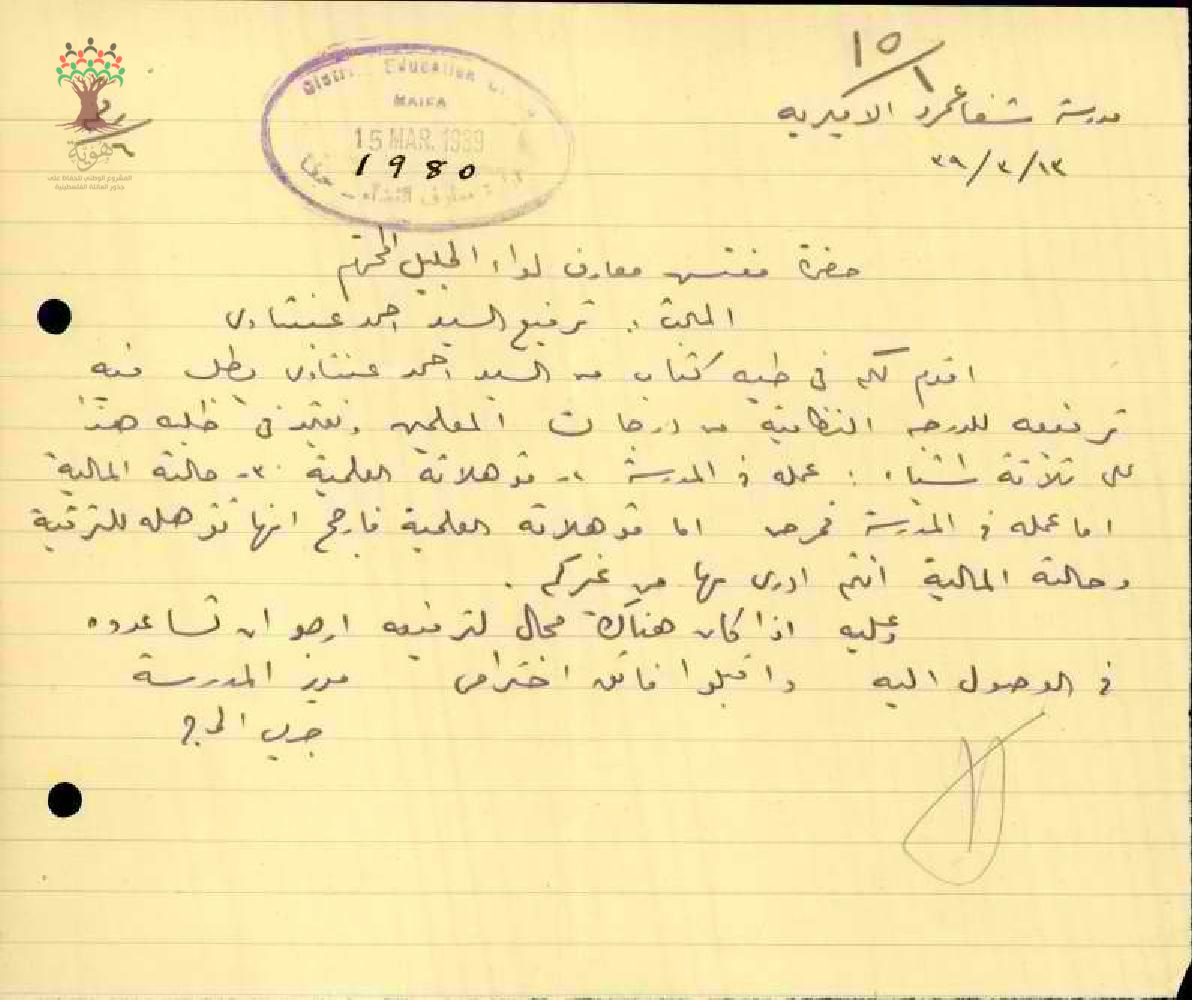 ١٥/١
مدرسة شفاعمرو الاميرية
٣٩/٣/١٣
District Education
HAIFA
15 MAR. 1939
1980
معارف اللواء - حيفا
هوية
المشروع الوطني للحفاظ على
جذور العائلة الفلسطينية
حضرة مفتش معارف لواء الجليل المحترم
المبحث : ترفيع السيد احمد عنبتاوي
اقدم لكم في طيه كتاب من السيد احمد عنبتاوي يطلب فيه
ترفيعه للدرجة النظامية من درجات المعلمين ويعتمد في طلبه هذا
على ثلاثة اشياء : عمله في المدرسة ٢- مؤهلاته العلمية ٣- حالته المالية
اما عمله في المدرسة فمرض اما مؤهلاته العلمية فارجح انها تؤهله للترقية
وحالته المالية انتم ادرى بها من غيركم .
وعليه اذا كان هناك مجال لترفيعه ارجو ان تساعدوه
في الوصول اليه واقبلوا فائق احترامي مدير المدرسة